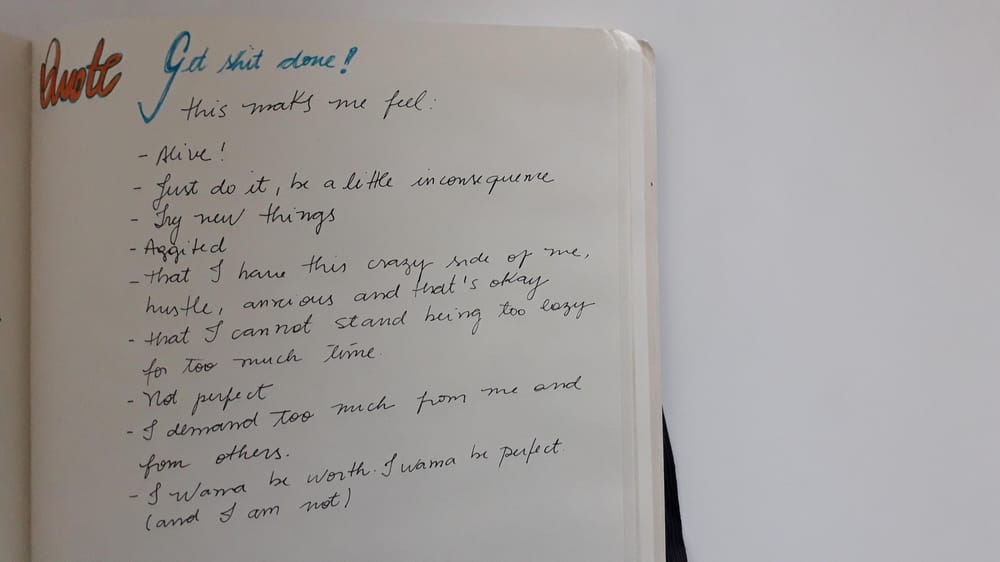 Quote Get shit done!
this maks me feel:
- Alive!
- Just do it, be a little inconsequence
- Try new things
- Aggited
- that I have this crazy side of me,
hustle, anxious and that's okay
- that I cannot stand being too lazy
for too much time.
- Not perfect
- I demand too much from me and
from others.
- I wanna be worth. I wanna be perfect.
(and I am not)